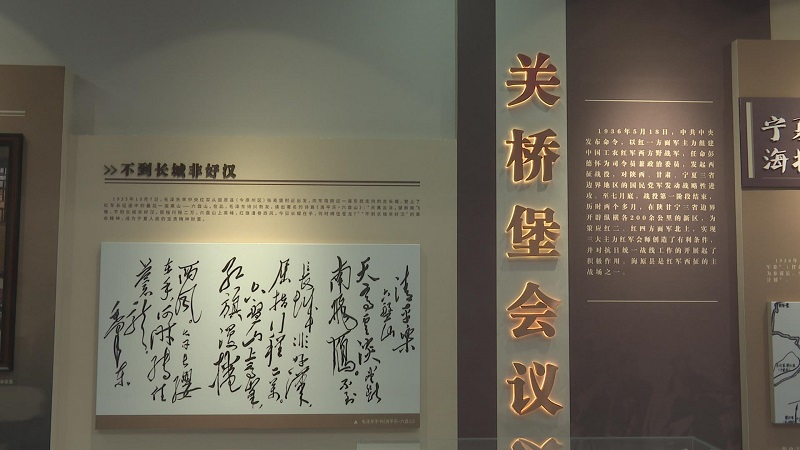 >>不到长城非好汉
清平乐
六盘山
天高云淡，望断
南飞雁。不到
长城非好汉，
屈指行程二万。
六盘山上高峰，
红旗漫卷
西风。今日长缨
在手，何时缚住
苍龙？
毛泽东
关桥堡会议
1936年5月18日，中共中央
发布命令，以红一方面军主力组建
中国工农红军西方野战军，任命彭
德怀为司令员兼政治委员，发起西
征战役，对陕西、甘肃、宁夏三省
边界地区的国民党军发动战略性进
攻。至七月底，战役第一阶段结束，
历时两个多月，在陕甘宁三省边界
开辟纵横各200余公里的新区，为
策应红二、红四方面军北上，实现
三大主力红军会师创造了有利条件，
并对抗日统一战线工作的开展起了
积极作用。海原县是红军西征的主
战场之一。
宁夏
海